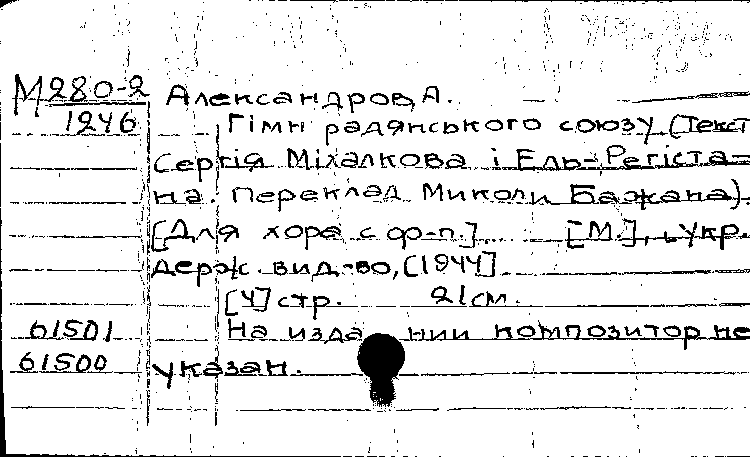 М280-2 Александров, А.
1246 Гімн радянського союзу (Текст
Сергія Міхалкова і Ель-Регіста-
на. Переклад Миколи Бажана).
[Для хора с ф-п.] [М.], Укр.
держ. вид-во, [1944].
[4] стр. 21 см.
61501 На изда нии композитор не
61500 указан.